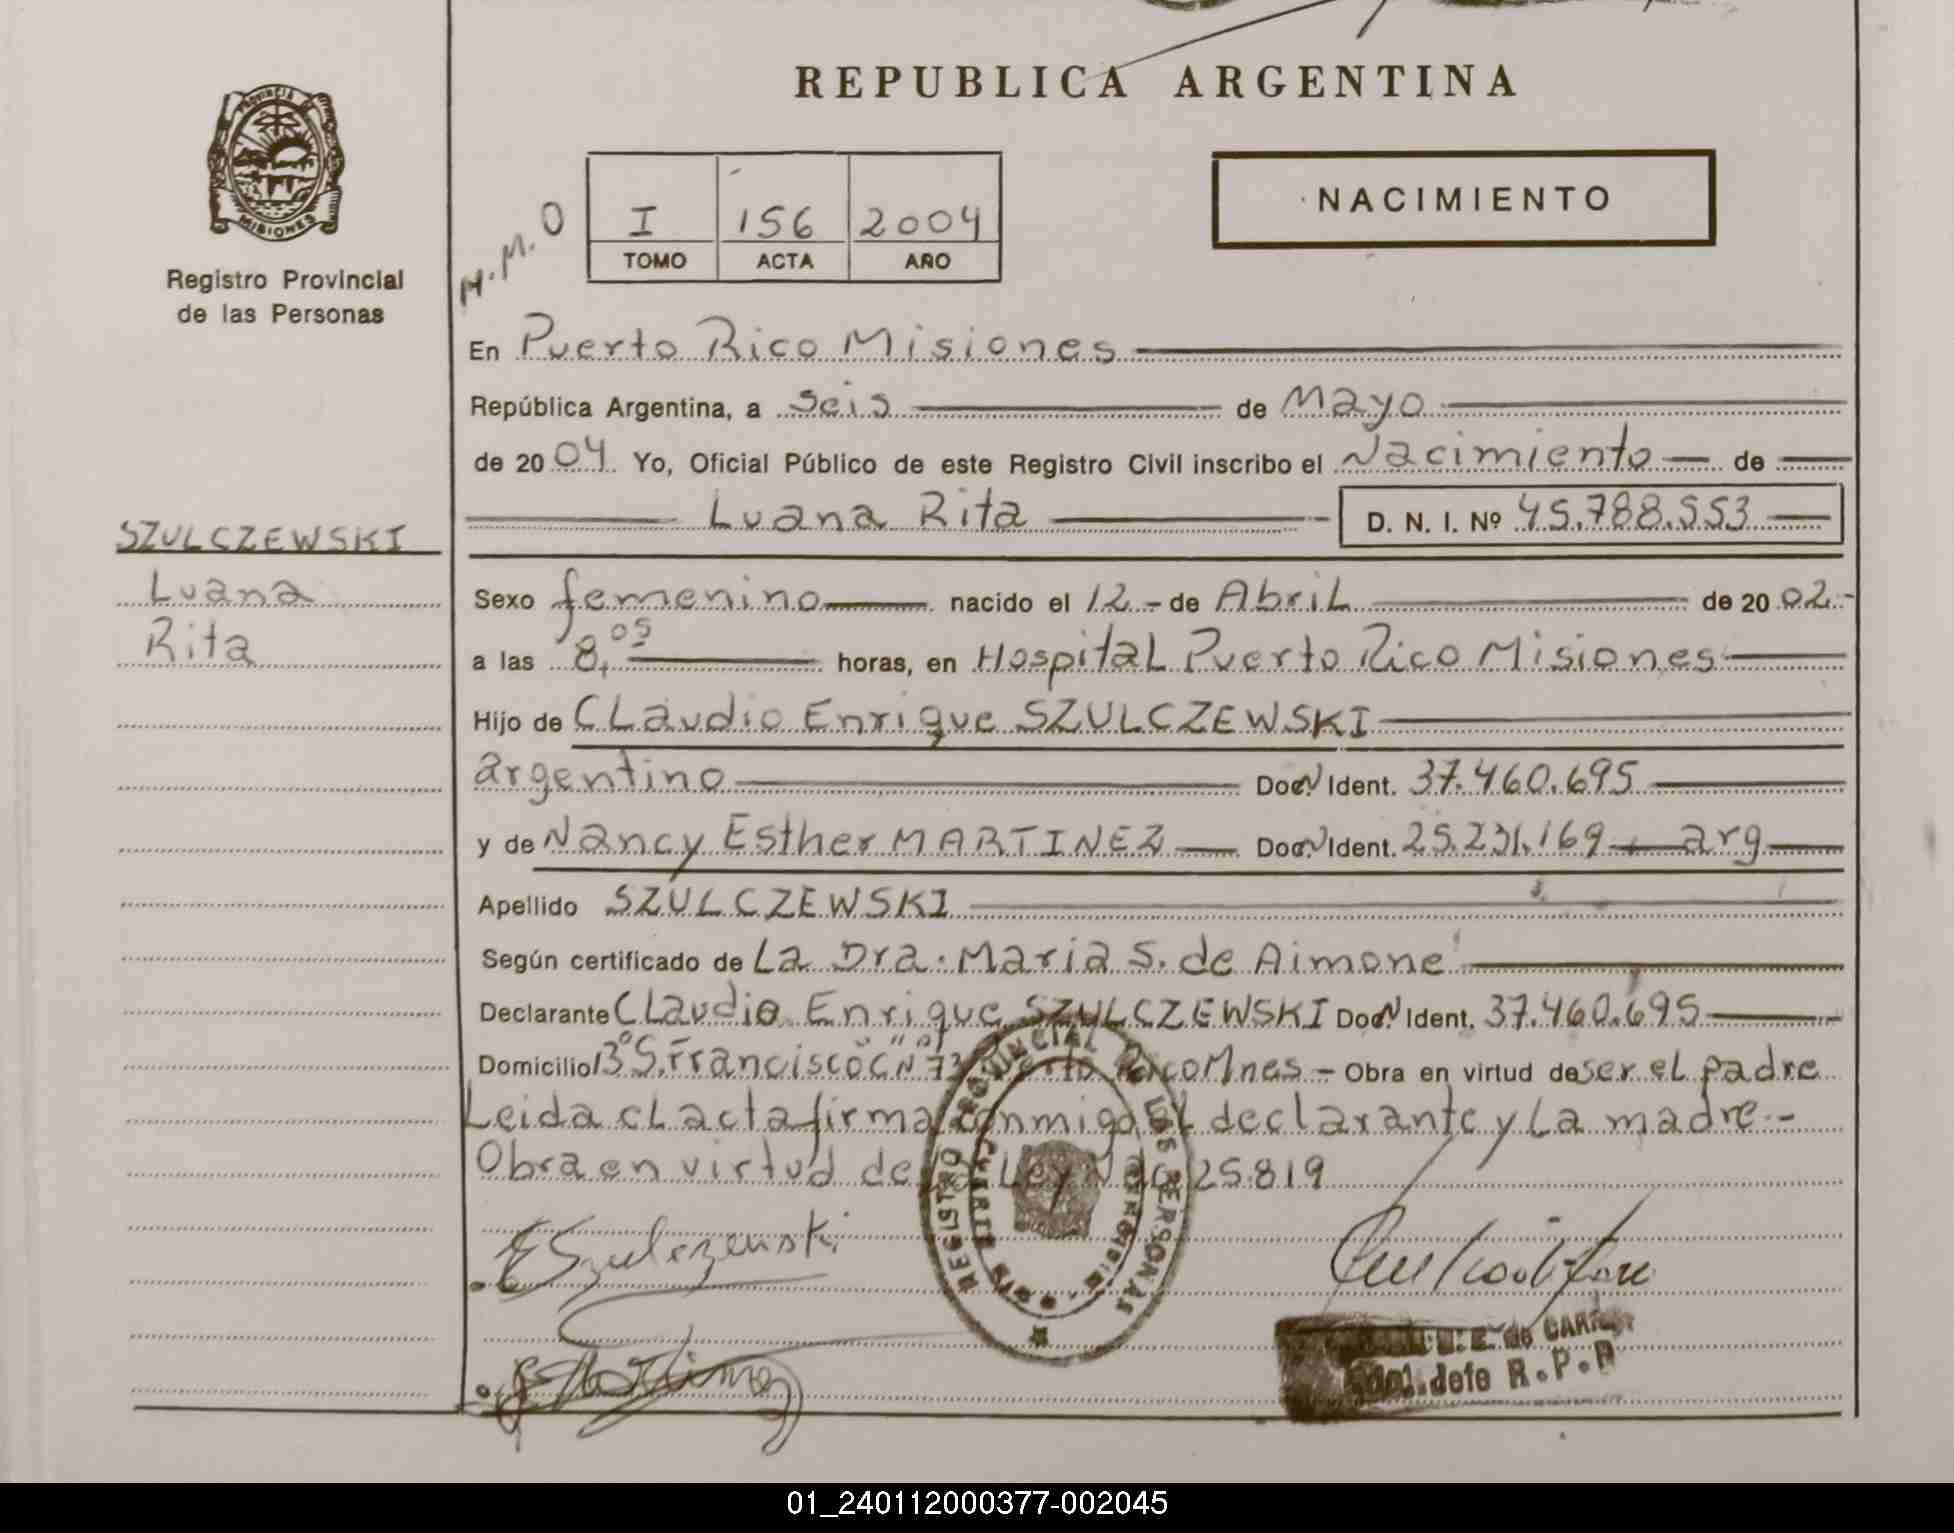 REPUBLICA ARGENTINA
PROVINCIA DE MISIONES
Registro Provincial
de las Personas
M.M.O
I 156 2004
TOMO ACTA AÑO
NACIMIENTO
En Puerto Rico Misiones
República Argentina, a seis de Mayo
de 2004 Yo, Oficial Público de este Registro Civil inscribo el Nacimiento de
Luana Rita D. N. I. Nº 45.788.553
SZULCZEWSKI
Luana
Rita
Sexo femenino nacido el 12 - de Abril de 2002.-
a las 8,05 horas, en Hospital Puerto Rico Misiones
Hijo de Claudio Enrique SZULCZEWSKI
argentino Doc. N Ident. 37.460.695
y de Nancy Esther MARTINEZ Doc. N Ident. 25.231.169 arg
Apellido SZULCZEWSKI
Según certificado de La Dra. Maria S. de Aimone
Declarante Claudio Enrique SZULCZEWSKI Doc. N Ident. 37.460.695
Domicilio Bº S. Francisco C Nº 73 Puerto Rico Mnes - Obra en virtud de ser el padre
Leida el acta firma conmigo el declarante y la madre -
Obra en virtud de la Ley Nac 25.819
E Szulczewski
REGISTRO PROVINCIAL DE LAS PERSONAS
MISIONES
E. de
R.P.P
01_240112000377-002045